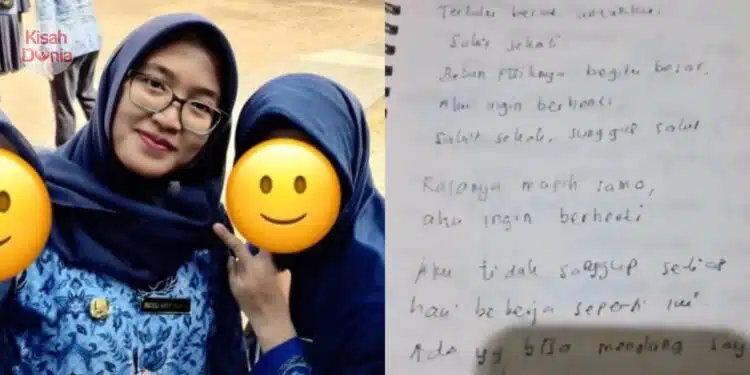 Kisah
Dunia
Terlalu berat untukku.
Sakit sekali
Beban fisiknya begitu besar.
Aku ingin berhenti
Sakit sekali, sungguh sakit
Rasanya masih sama,
aku ingin berhenti
Aku tidak sanggup setiap
hari bekerja seperti ini.
Ada yg bisa menolong say